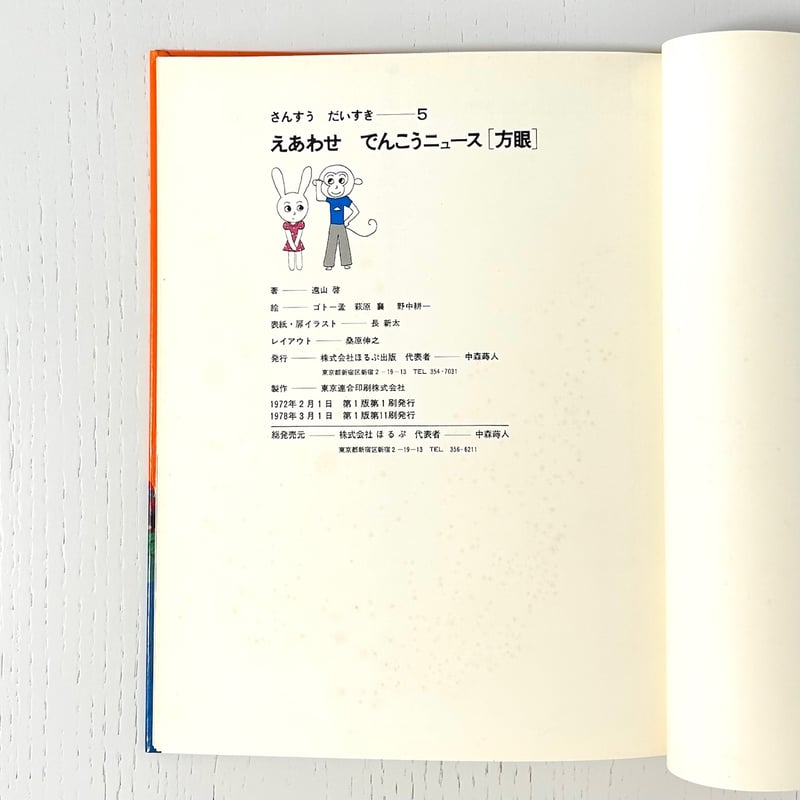 さんすう だいすき——5
えあわせ でんこうニュース[方眼]
著——遠山 啓
絵——ゴトー孟 萩原 襄 野中耕一
表紙・扉イラスト——長 新太
レイアウト——桑原伸之
発行——株式会社ほるぷ出版 代表者——中森蒔人
東京都新宿区新宿2-19-13 TEL 354-7031
製作——東京連合印刷株式会社
1972年2月1日 第1版第1刷発行
1978年3月1日 第1版第11刷発行
総発売元——株式会社ほるぷ 代表者——中森蒔人
東京都新宿区新宿2-19-13 TEL 356-6211